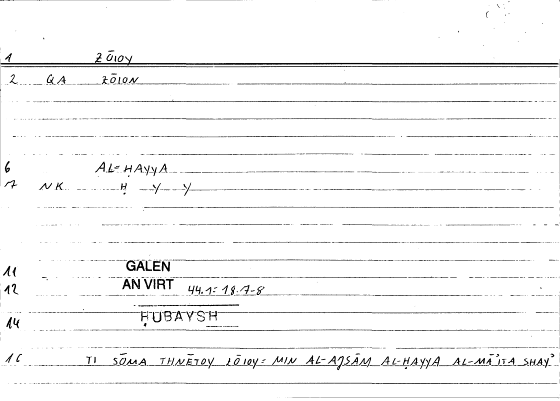 1 ZŌIOY
2 QA ZŌION
6 AL-ḤAYYA
7 NK Ḥ Y Y
11 GALEN
12 AN VIRT 44.1: 18.7-8
14 ḤUBAYSH
16 TI SŌMA THNĒTOY ZŌIOY= MIN AL-AJSĀM AL-ḤAYYA AL-MĀʾITA SHAYʾ